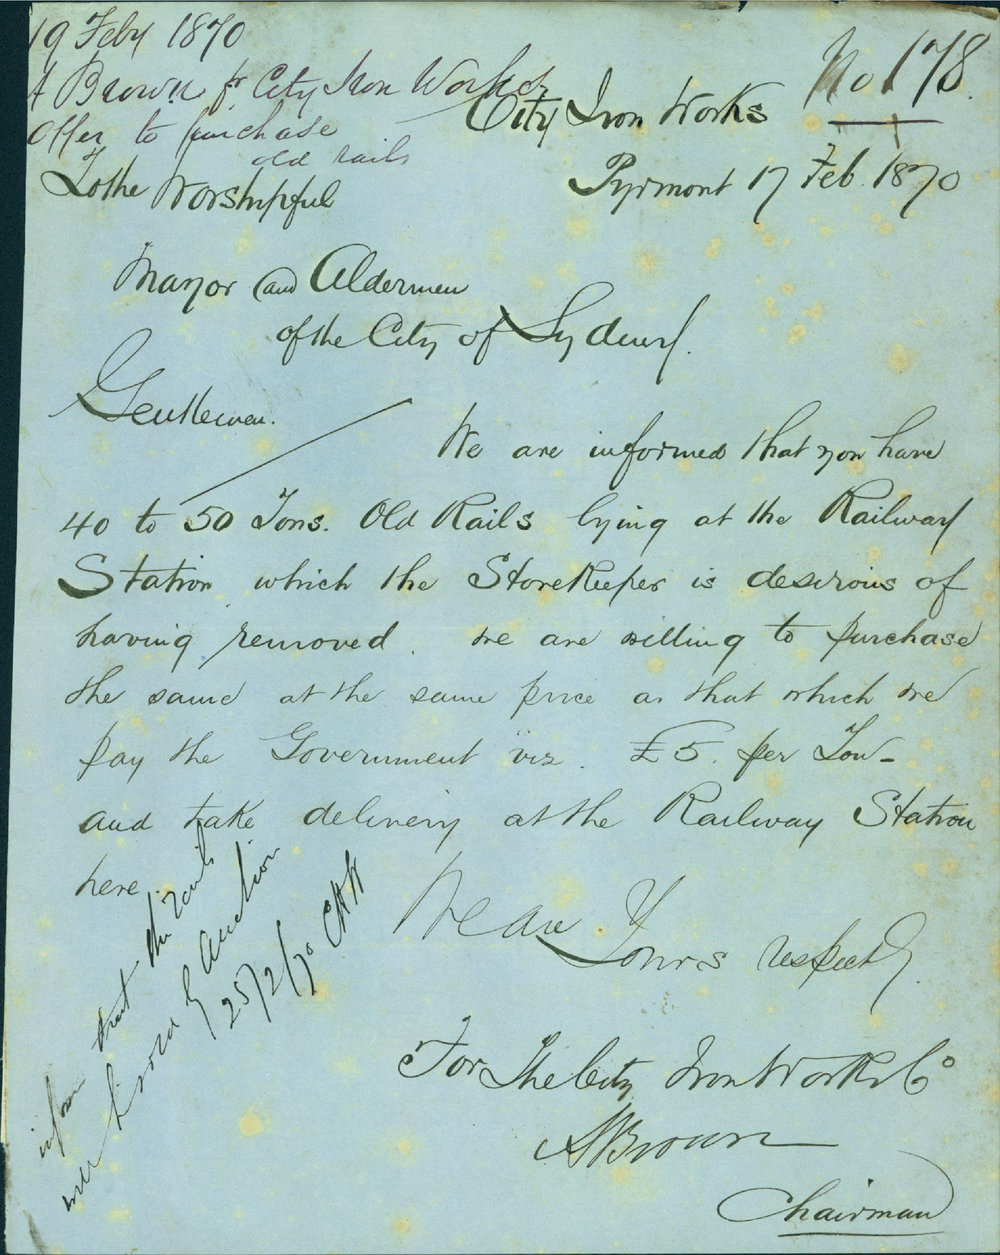 19 Feby 1870
A Brown fr City Iron Works
Offer to purchase
old rails
No 178
City Iron Works
Pyrmont 17 Feb. 1870
To the Worshipful
Mayor and Aldermen
of the City of Sydney.
Gentlemen.
We are informed that you have
40 to 50 Tons. Old Rails lying at the Railway
Station which the StoreKeeper is desirous of
having removed. We are willing to purchase
the same at the same price as that which we
pay the Government viz. £5. per Ton -
and take delivery at the Railway Station
here.
We are
Yours respectly.
For The City Iron Works Co
A Brown
Chairman
inform that the rails
will be sold by Auction
25/2/70 CHW